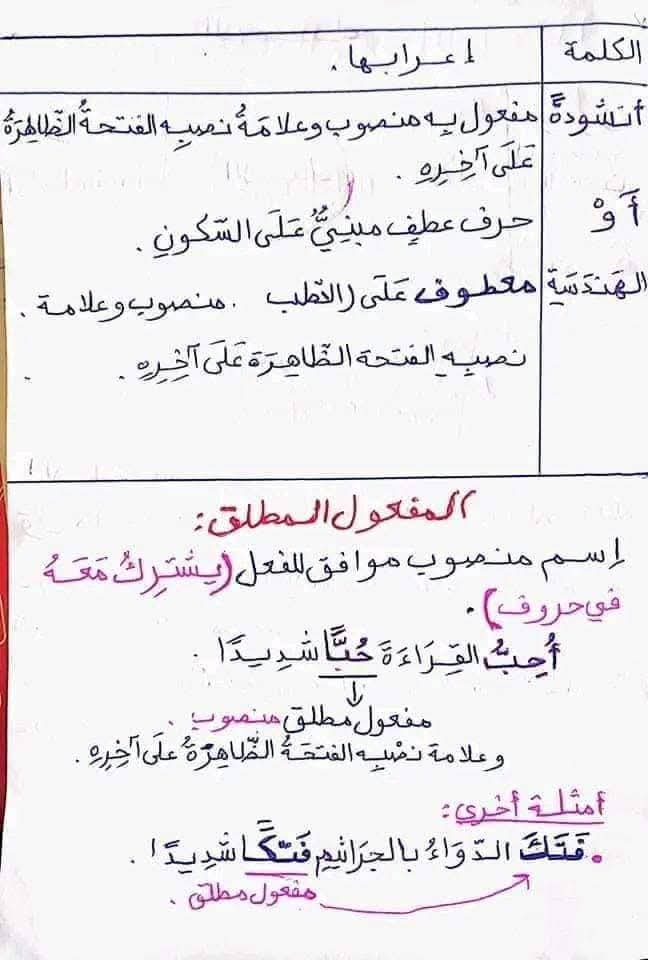 الكلمة إعرابها .
أنشودةً مفعول به منصوب وعلامَةُ نصبِهِ الفتحةُ الظّاهِرَةُ
عَلَى آخِرِهِ .
أَوْ حرف عطفٍ مبنِيٌّ عَلَى السّكونِ .
الهَندَسَيّة معطوف عَلَى الطب . منصوب وعلامة .
نصبِهِ الفتحة الظّاهِرَة عَلَى آخِرِهِ .
المفعول المطلق:
إسم منصوب موافق للفعل (يشتَرِكُ مَعَهُ
في حروف) .
أُحِبُّ القِرَاءَةَ حُبًّا شَدِيدًا .
مفعول مطلق منصوب .
وعلامة نصْبِهِ الفتحَةُ الظّاهِرَةُ عَلَى آخِرِهِ .
أمثلة أخرى:
• فَتَكَ الدّوَاءُ بالجرَاثيمِ فَتكًا شَدِيدًا .
مفعول مطلق .